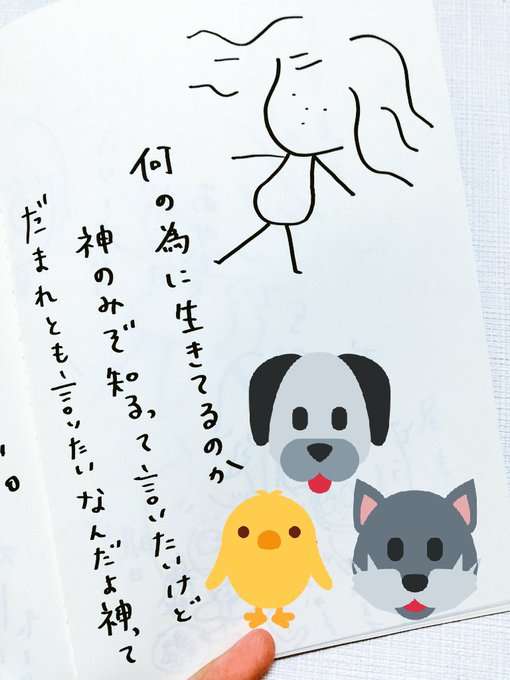 何の為に生きてるのか
神のみぞ知るって言いたいけど
だまれとも言いたいなんだよ神って